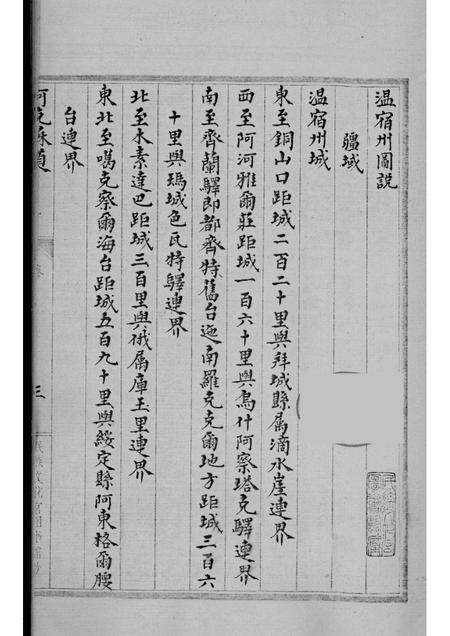 温宿州圖說
疆域
温宿州城
東至銅山口距城二百二十里與拜城縣屬滴水崖連界
西至阿河雅爾莊距城一百六十里與烏什阿察塔克驛連界
南至齊蘭驛即都齊特舊台迤南羅克克爾地方距城三百六
十里與瑪城色瓦特驛連界
北至木素達巴距城三百里與俄属庫玉里連界
東北至噶克察爾海台距城五百九十里與綏定縣阿東格爾腰
台連界
三